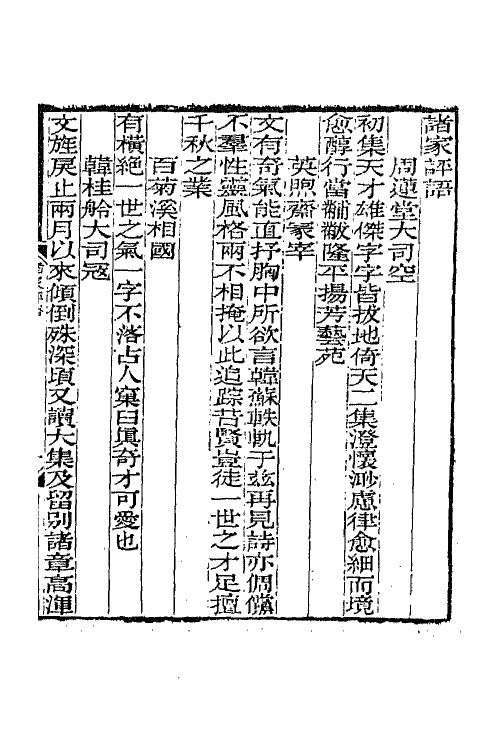 諸家評語
周蓮堂大司空
初集天才雄傑字字皆拔地倚天二集澄懷渺慮律愈細而境
愈醇行當黼黻隆平揚芳藝苑
英煦齋冢宰
文有奇氣能直抒胸中所欲言韓蘇軼軌于玆再見詩亦倜儻
不羣性靈風格兩不相掩以此追踪昔賢豈徒一世之才足擅
千秋之業
百菊溪相國
有橫絕一世之氣一字不落占人窠臼眞奇才可愛也
韓桂舲大司冦
文旌戾止兩月以來傾倒殊深頃又讀大集及留別諸章高渾